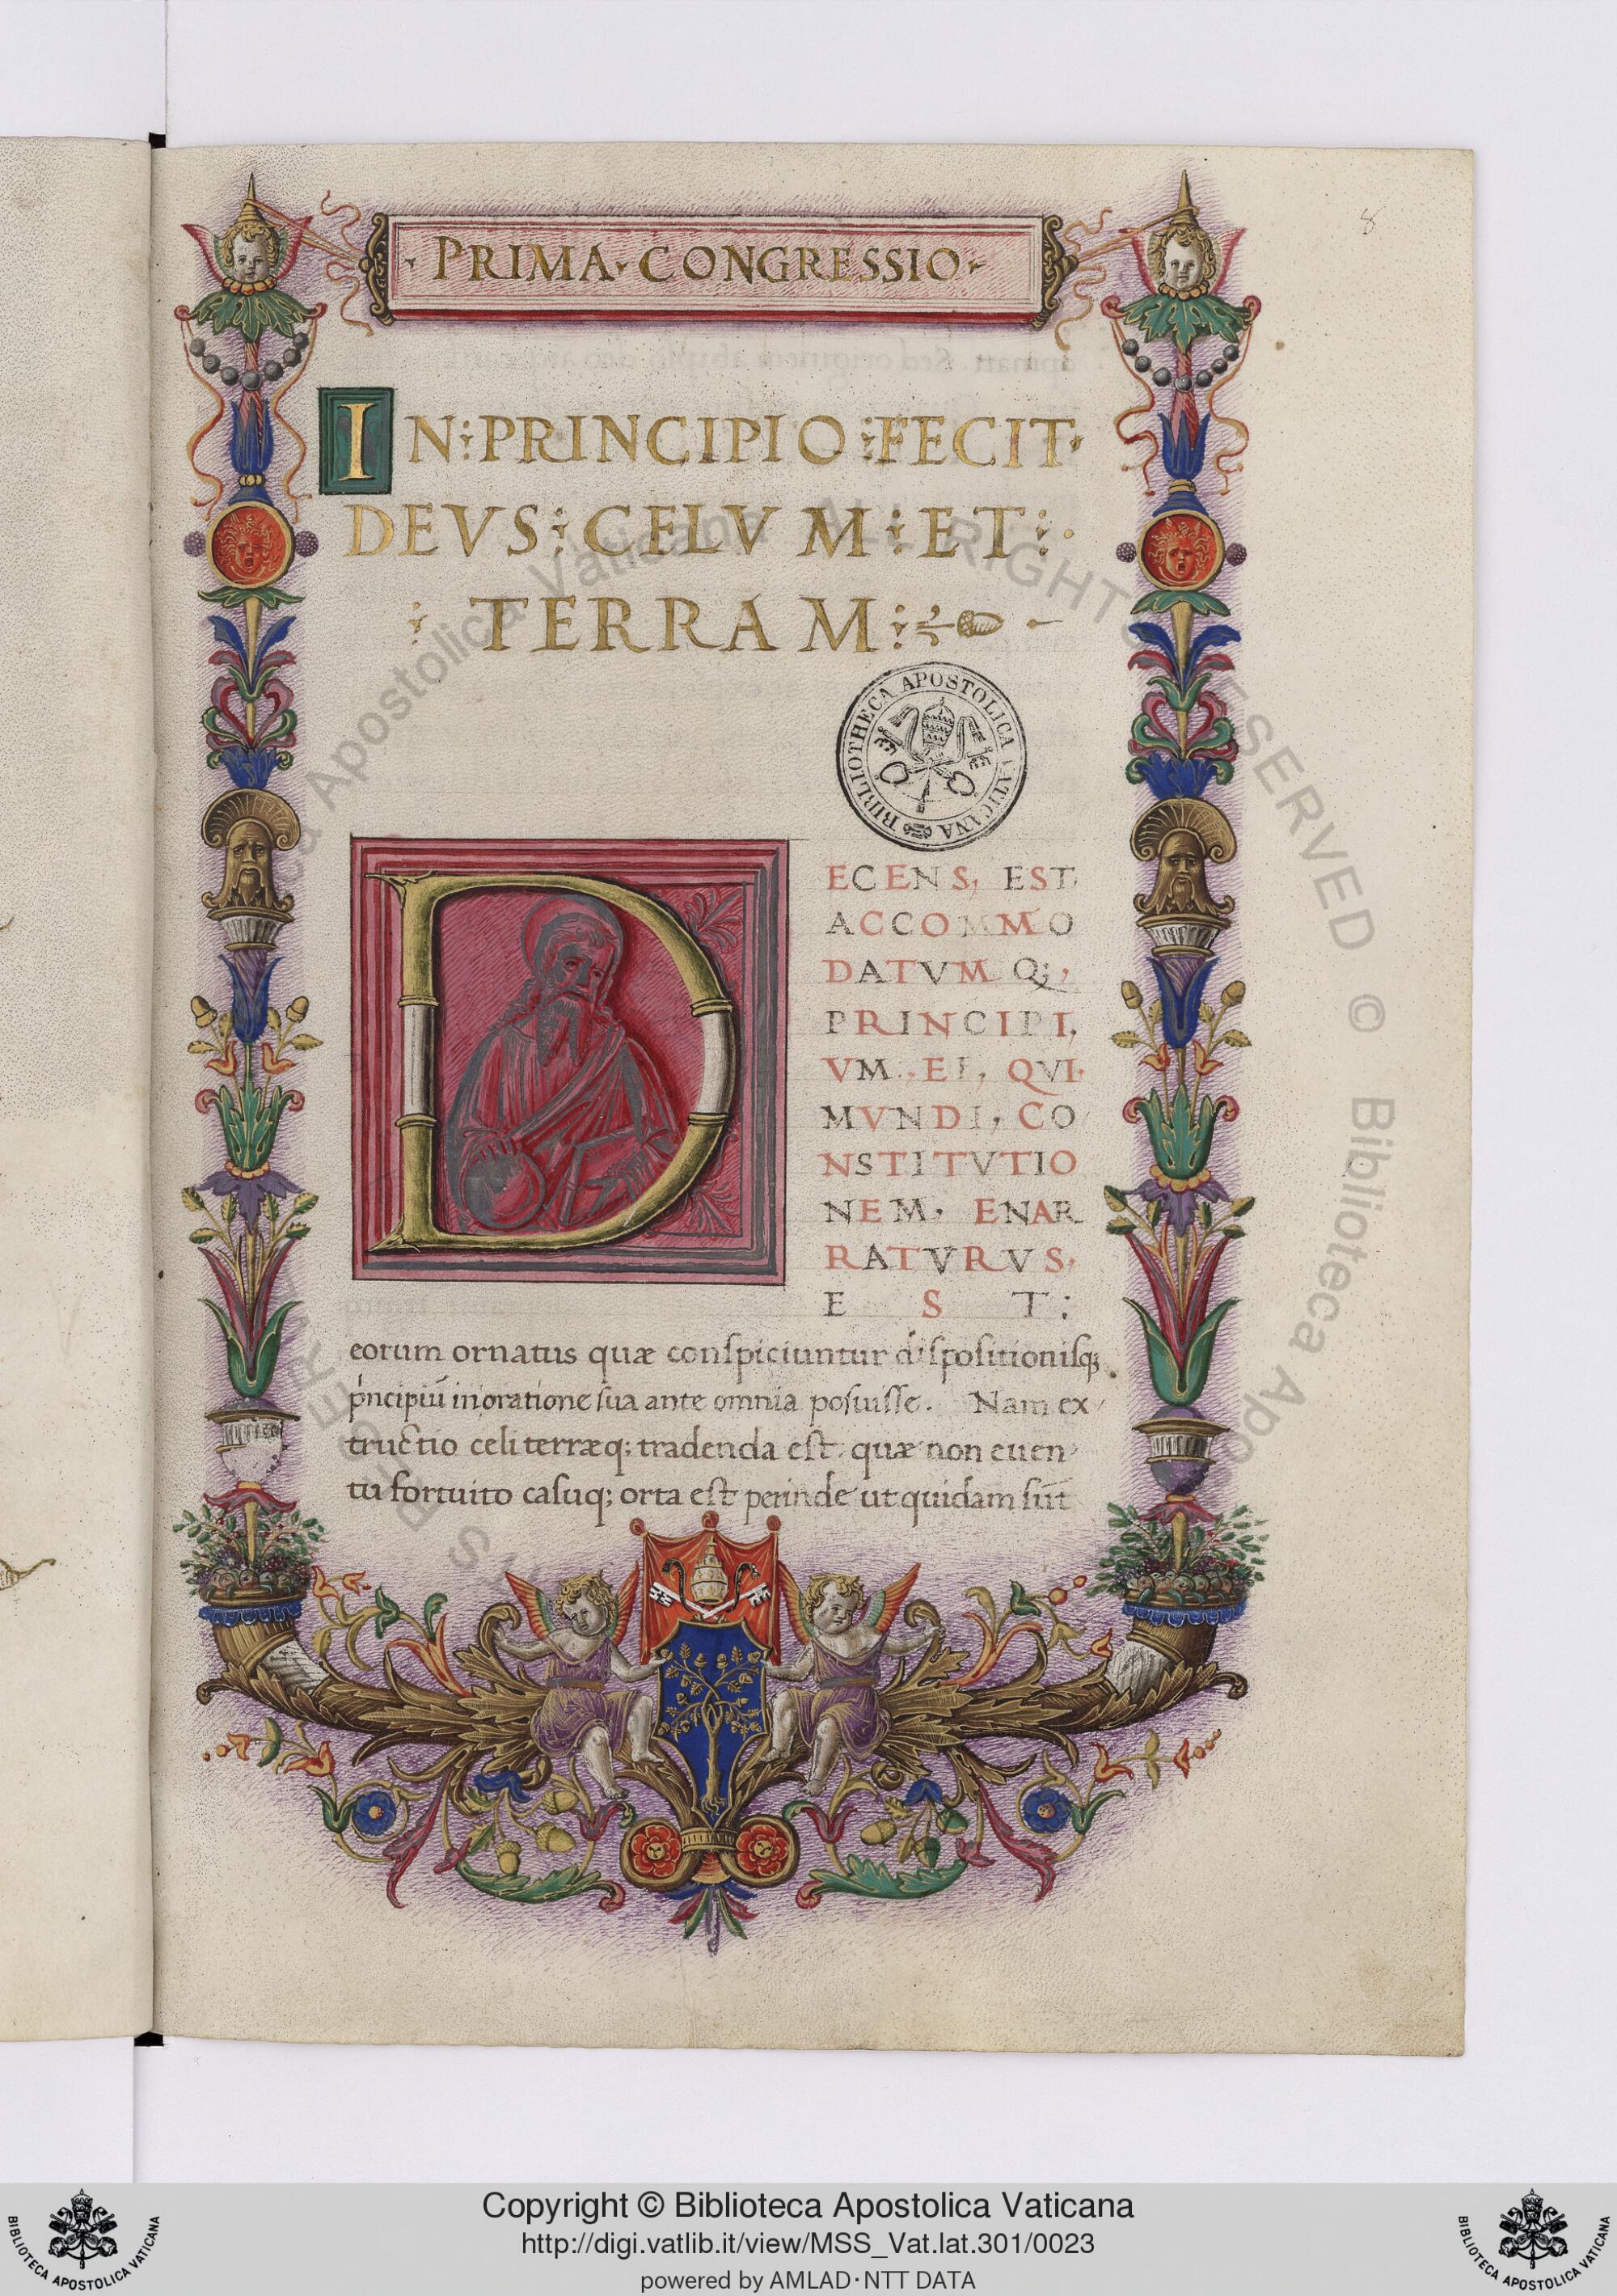 8
PRIMA · CONGRESSIO ·
IN : PRINCIPIO : FECIT ·
DEVS : CELVM : ET : ·
: TERRAM :
BIBLIOTHECA APOSTOLICA VATICANA
DECENS, EST
ACCOMMO
DATVM Q;,
PRINCIPI,
VM . EI, QVI.
MVNDI, CO
NSTITVTIO
NEM, ENAR
RATVRVS,
EST :
eorum ornatus quæ conspiciuntur dispositionisq;
p̍ncipiũ in oratione sua ante omnia posuisse. Nam ex
tructio celi terræq; tradenda est, quæ non euen
tu fortuito casuq; orta est perinde ut quidam sũt
Biblioteca Apostolica Vaticana ALL RIGHTS RESERVED ©
Copyright © Biblioteca Apostolica Vaticana
http://digi.vatlib.it/view/MSS_Vat.lat.301/0023
powered by AMLAD·NTT DATA
BIBLIOTECA APOSTOLICA VATICANA
BIBLIOTECA APOSTOLICA VATICANA